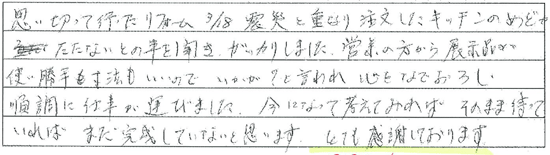 思い切って行ったリフォーム 3/18 震災と重なり注文したキッチンのめどが
たたないとの事を聞き、ガッカリしました。営業の方から展示品が
使い勝手も寸法もいいので いかが?と言われ 心をなでおろし
順調に仕事が運びました。今になって考えてみれば そのまま待って
いれば まだ完成していないと思います。とても感謝しております